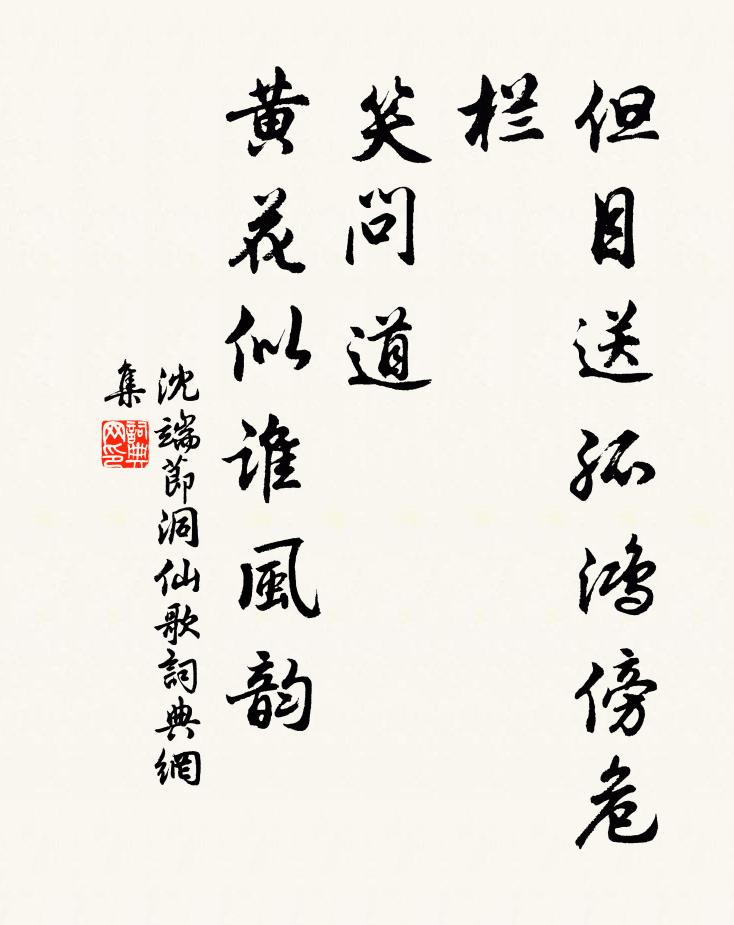 但目送孤鸿傍危
栏
笑问道
黄花似谁風韵
沈端節洞仙歌詞典網
集
詞典
网印